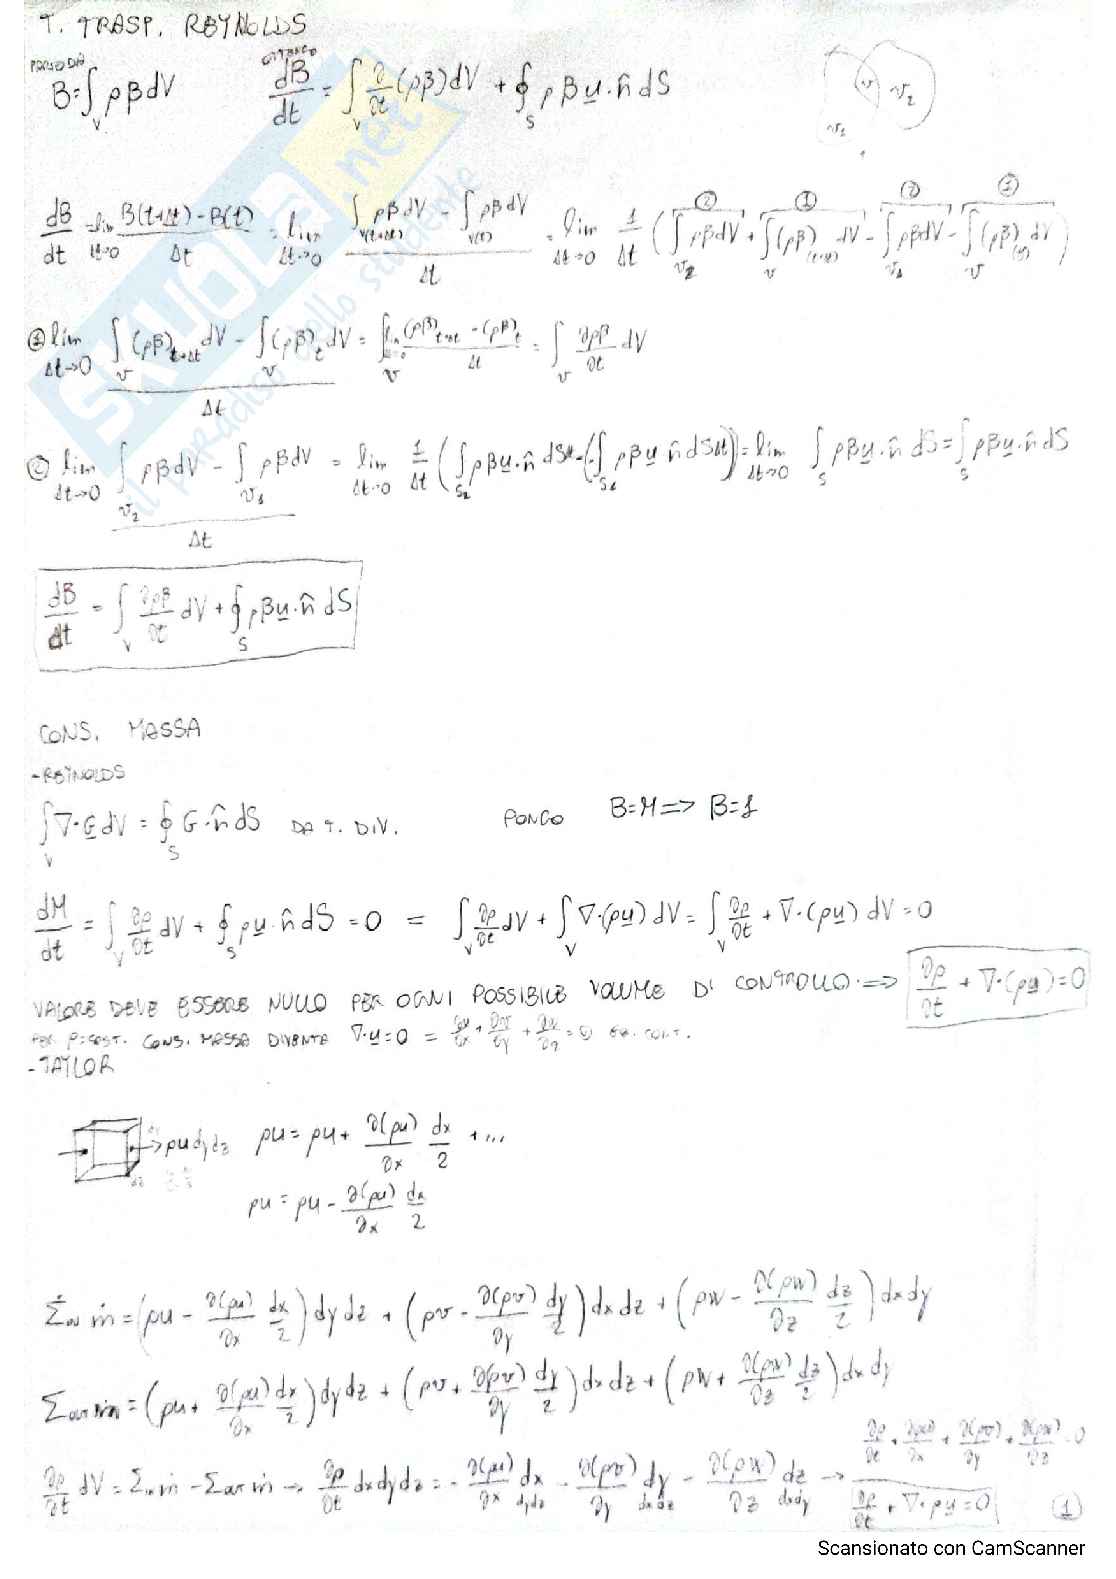 T. TRASP. REYNOLDS
PARTENDO DA B=∫_V ρβdV OTTENGO dB/dt = ∫_V ∂/∂t (ρβ)dV + ∮_S ρβu·n̂ dS
V₁ V V₂
dB/dt = lim_{Δt→0} (B(t+Δt) - B(t))/Δt = lim_{Δt→0} (∫_{V(t+Δt)} ρβdV - ∫_{V(t)} ρβdV)/Δt = lim_{Δt→0} 1/Δt (∫_{V₂} ρβdV + ∫_V (ρβ)_{(t+Δt)} dV - ∫_{V₁} ρβdV - ∫_V (ρβ)_{(t)} dV)
② ① ② ①
① lim_{Δt→0} (∫_V (ρβ)_{t+Δt} dV - ∫_V (ρβ)_t dV)/Δt = ∫_V lim_{Δt→0} ((ρβ)_{t+Δt} - (ρβ)_t)/Δt = ∫_V ∂ρβ/∂t dV
② lim_{Δt→0} (∫_{V₂} ρβdV - ∫_{V₁} ρβdV)/Δt = lim_{Δt→0} 1/Δt (∫_{S₂} ρβu·n̂ dSΔt - (-∫_{S₁} ρβu n̂ dSΔt)) = lim_{Δt→0} ∫_S ρβu·n̂ dS = ∫_S ρβu·n̂ dS
dB/dt = ∫_V ∂ρβ/∂t dV + ∮_S ρβu·n̂ dS
CONS. MASSA
-REYNOLDS
∫_V ∇·G dV = ∮_S G·n̂ dS DA T. DIV. PONGO B=M => β=1
dM/dt = ∫_V ∂ρ/∂t dV + ∮_S ρu·n̂ dS = 0 = ∫_V ∂ρ/∂t dV + ∫_V ∇·(ρu) dV = ∫_V ∂ρ/∂t + ∇·(ρu) dV = 0
VALORE DEVE ESSERE NULLO PER OGNI POSSIBILE VOLUME DI CONTROLLO => ∂ρ/∂t + ∇·(ρu) = 0
PER ρ=COST. CONS. MASSA DIVENTA ∇·u=0 = ∂u/∂x + ∂v/∂y + = 0 EQ. CONT.
-TAYLOR
ρu dydz ρu = ρu + ∂(ρu)/∂x dx/2 + ...
ρu = ρu - ∂(ρu)/∂x dx/2
Σ_IN ṁ = (ρu - ∂(ρu)/∂x dx/2) dydz + (ρv - ∂(ρv)/∂y dy/2) dxdz + (ρw - ∂(ρw)/∂z dz/2) dxdy
Σ_OUT ṁ = (ρu + ∂(ρu)/∂x dx/2) dydz + (ρv + ∂(ρv)/∂y dy/2) dxdz + (ρw + ∂(ρw)/∂z dz/2) dxdy
∂ρ/∂t dV = Σ_IN ṁ - Σ_OUT ṁ → ∂ρ/∂t dxdydz = - ∂(ρu)/∂x dx dydz - ∂(ρv)/∂y dy dxdz - ∂(ρw)/∂z dz dxdy → ∂ρ/∂t + ∂(ρu)/∂x + ∂(ρv)/∂y + ∂(ρw)/∂z = 0
∂ρ/∂t + ∇·ρu = 0
①
SKUOLA.net
il paradiso dello studente
Scansionato con CamScanner